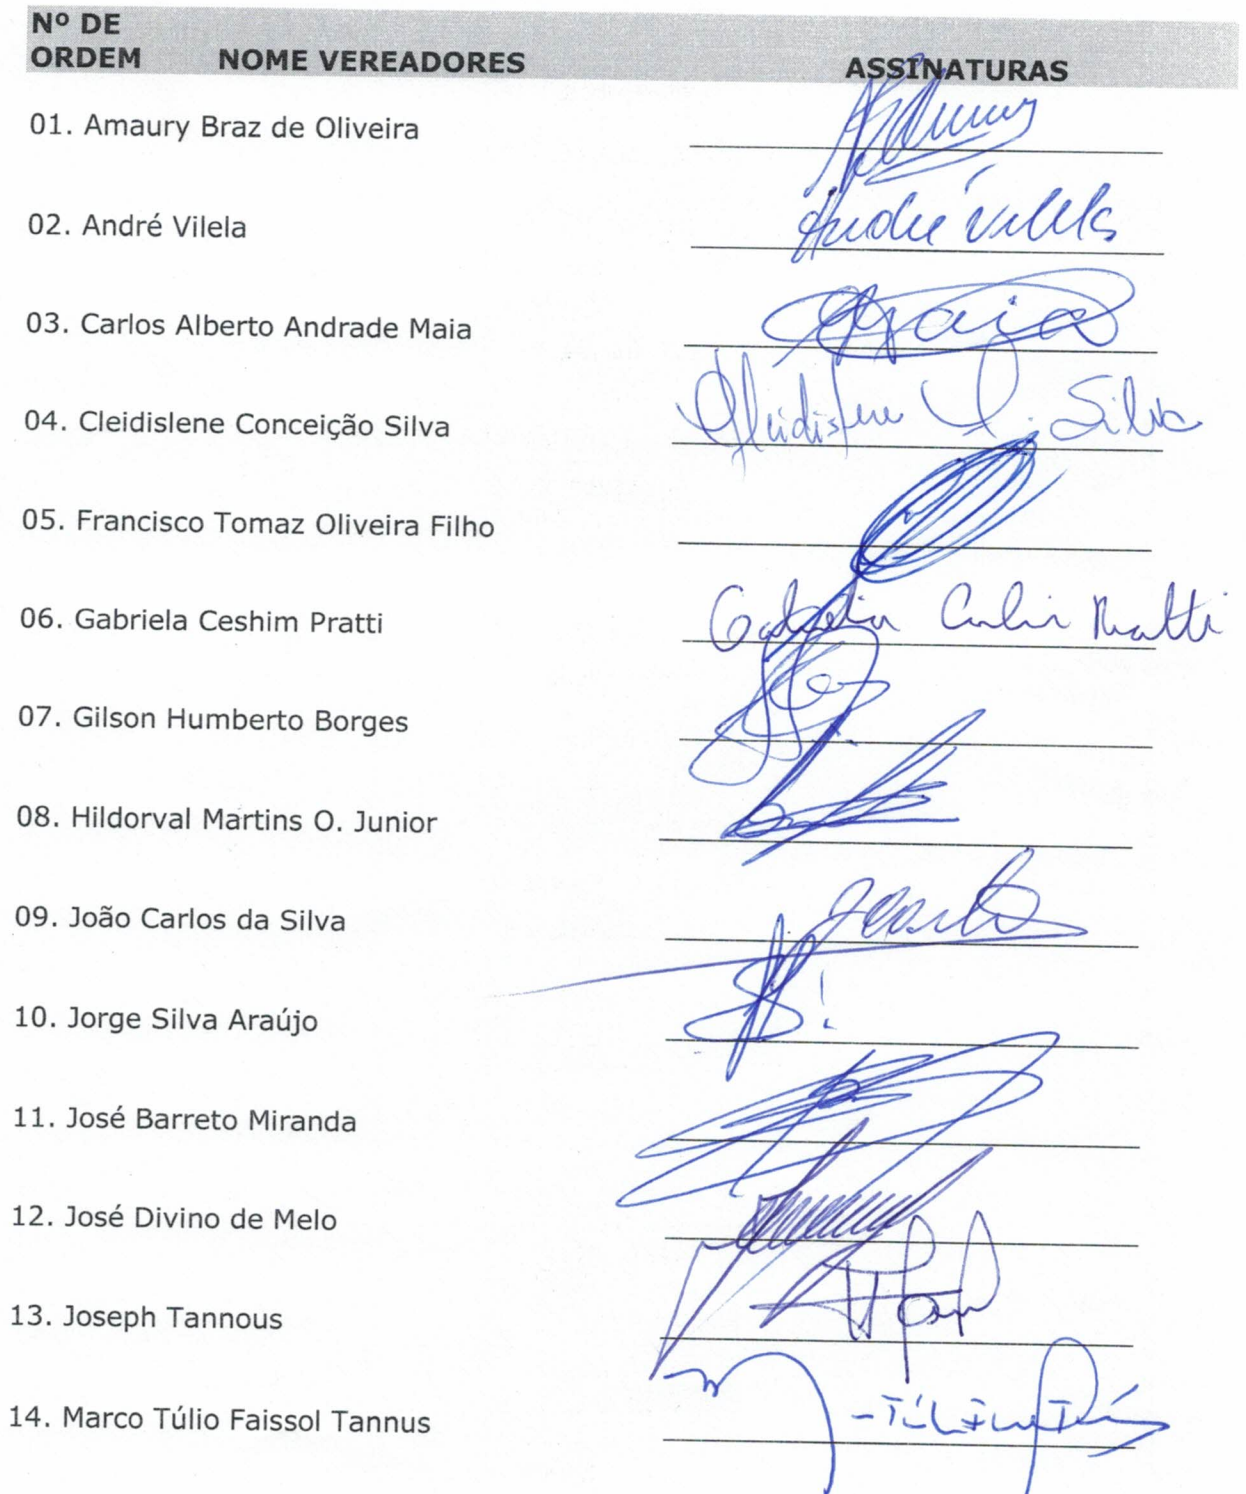 Nº DE
ORDEM NOME VEREADORES ASSINATURAS
01. Amaury Braz de Oliveira
02. André Vilela André Vilela
03. Carlos Alberto Andrade Maia Maia
04. Cleidislene Conceição Silva Cleidislene C. Silva
05. Francisco Tomaz Oliveira Filho
06. Gabriela Ceshim Pratti Gabriela Ceshim Pratti
07. Gilson Humberto Borges
08. Hildorval Martins O. Junior
09. João Carlos da Silva
10. Jorge Silva Araújo
11. José Barreto Miranda
12. José Divino de Melo
13. Joseph Tannous
14. Marco Túlio Faissol Tannus